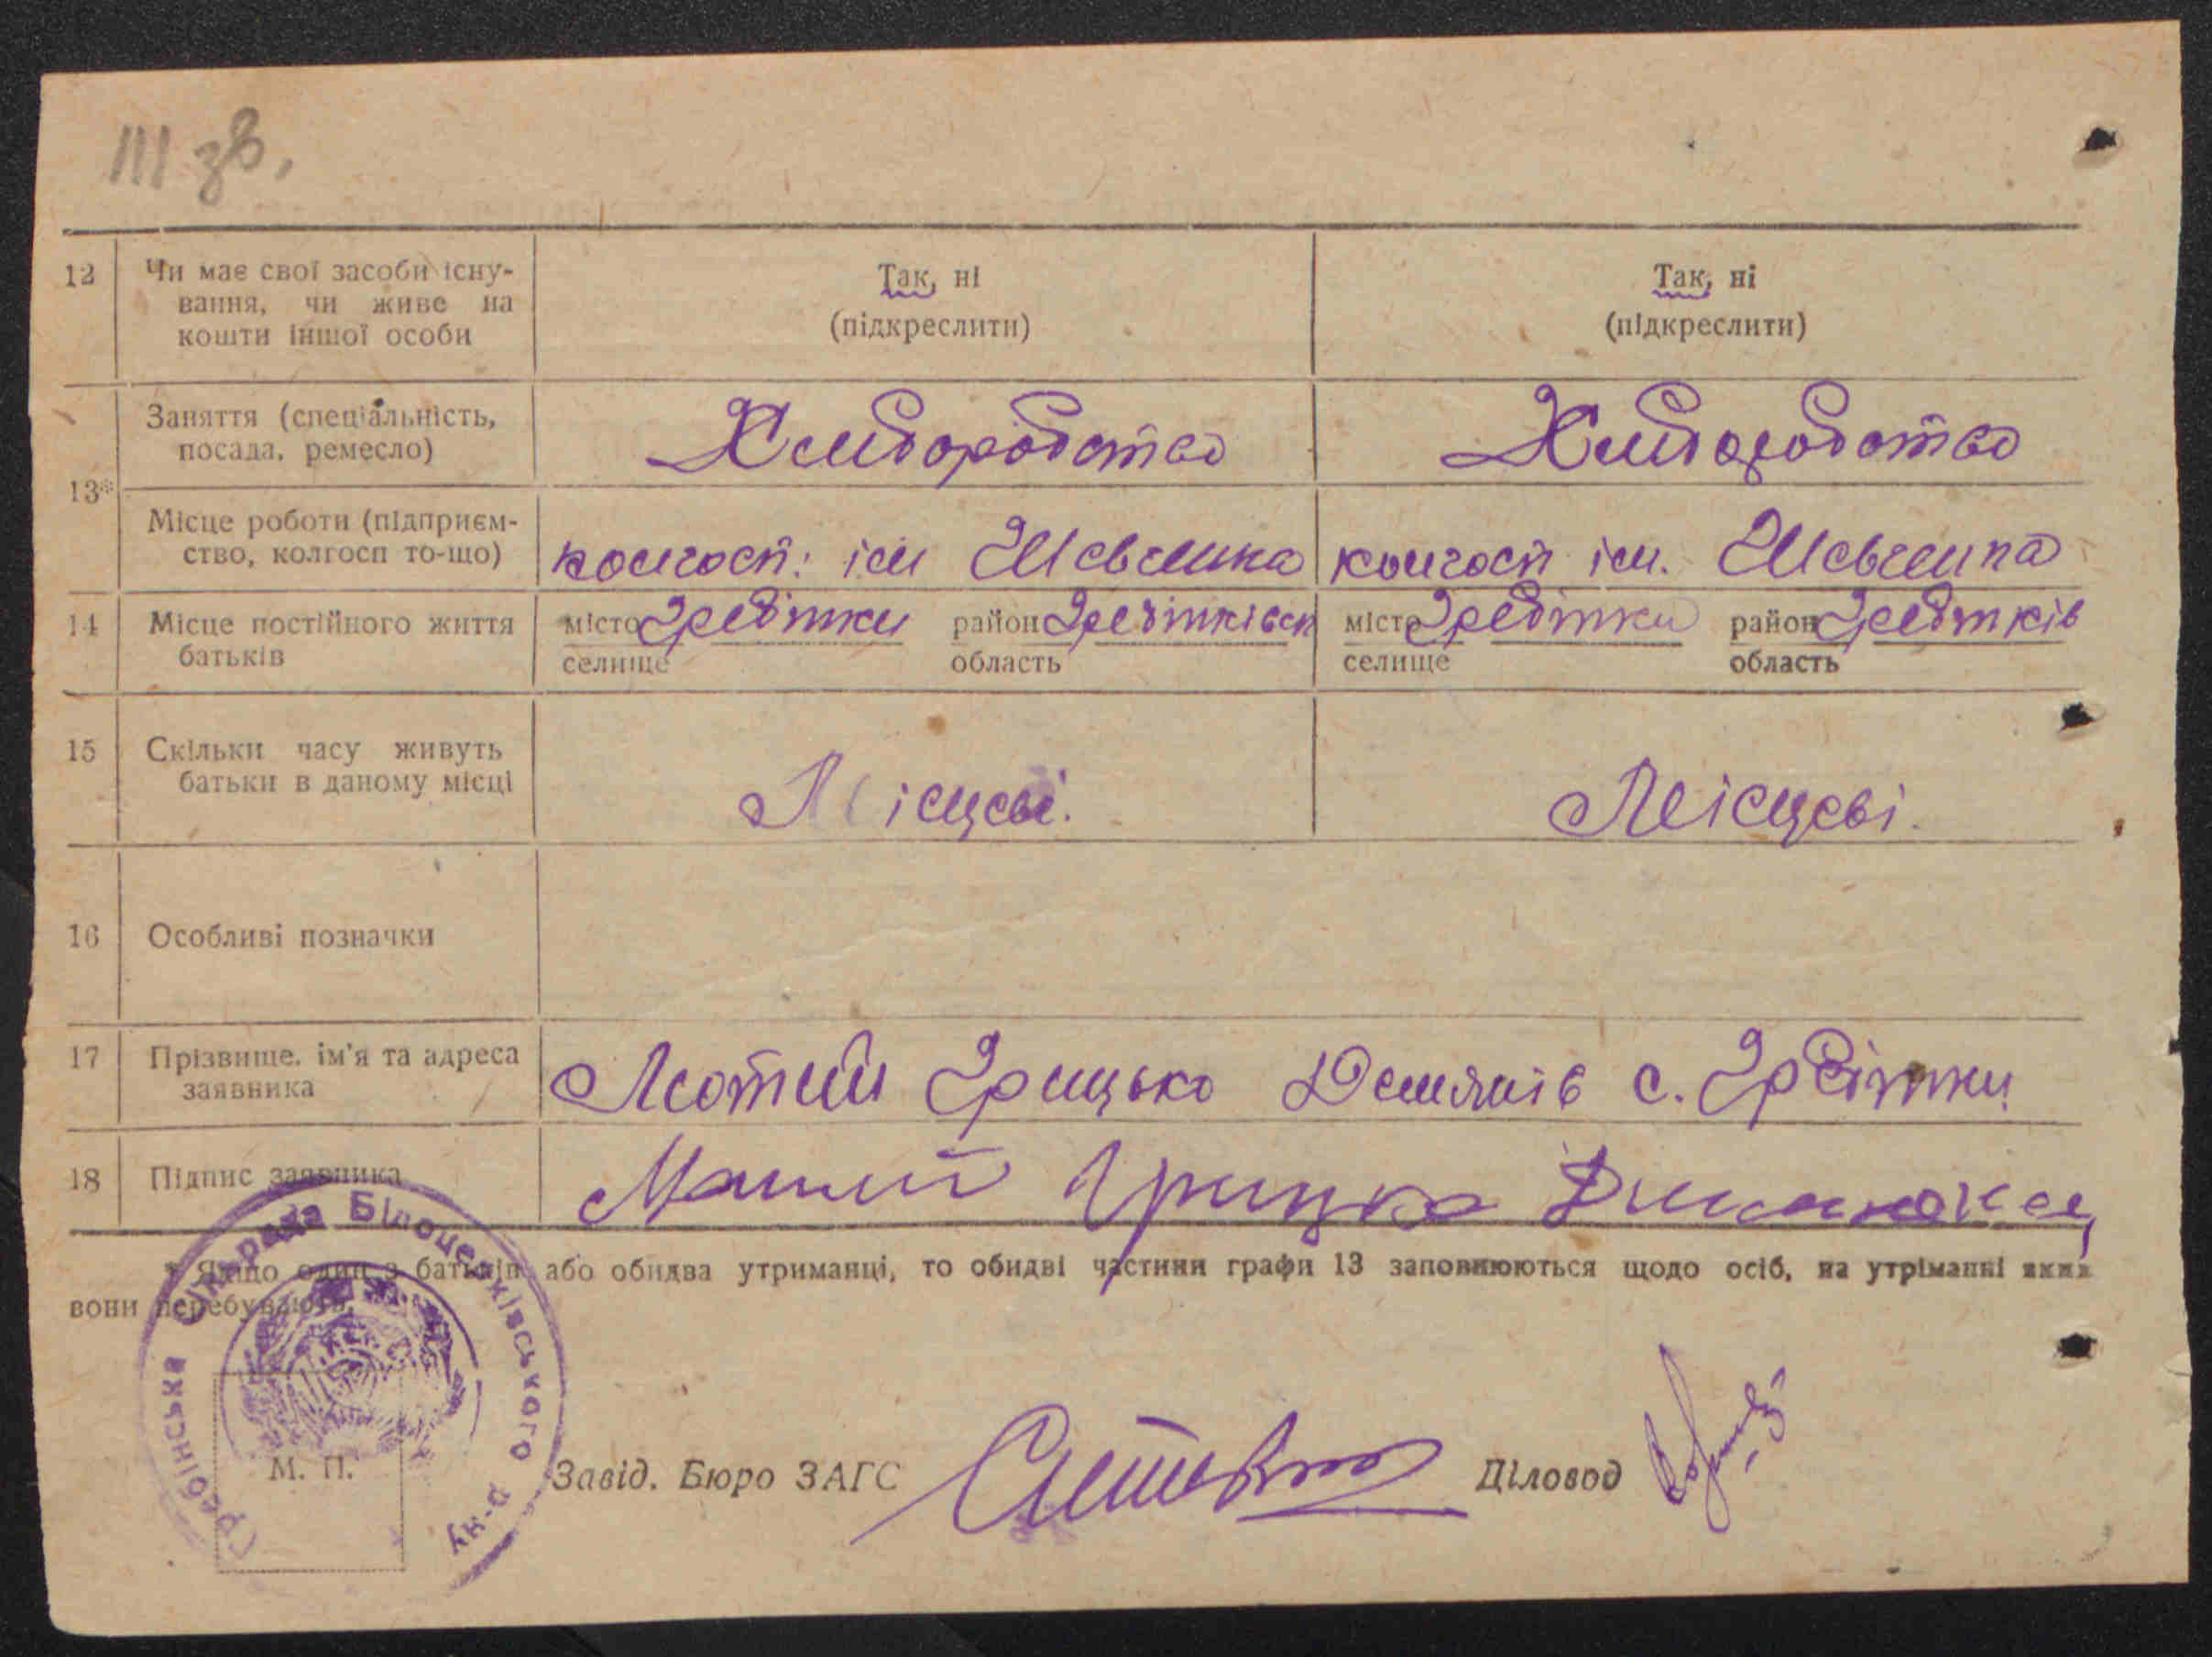 111 зв.
12 Чи має свої засоби існу-
вання, чи живе на
кошти іншої особи
Так, ні
(підкреслити)
Так, ні
(підкреслити)
13*
Заняття (спеціальність,
посада, ремесло)
Хлиборобство
Хлиборобство
Місце роботи (підприєм-
ство, колгосп то-що)
колгосп: ім Шевченка
колгосп ім. Шевченка
14 Місце постійного життя
батьків
місто Гребінки район Гребінківск
селище область
місто Гребінки район Гребінків
селище область
15 Скільки часу живуть
батьки в даному місці
Місцеві.
Місцеві.
16 Особливі позначки
17 Прізвище, ім'я та адреса
заявника
Лютий Грицько Демянів с. Гребінки
18 Підпис заявника
Грицько
* Якщо один з батьків або обидва утриманці, то обидві частини графи 13 заповнюються щодо осіб, на утріманні яких
вони перебувають.
Гребінська сільрада Білоцерківського р-ну
М. П.
Завід. Бюро ЗАГС
Діловод